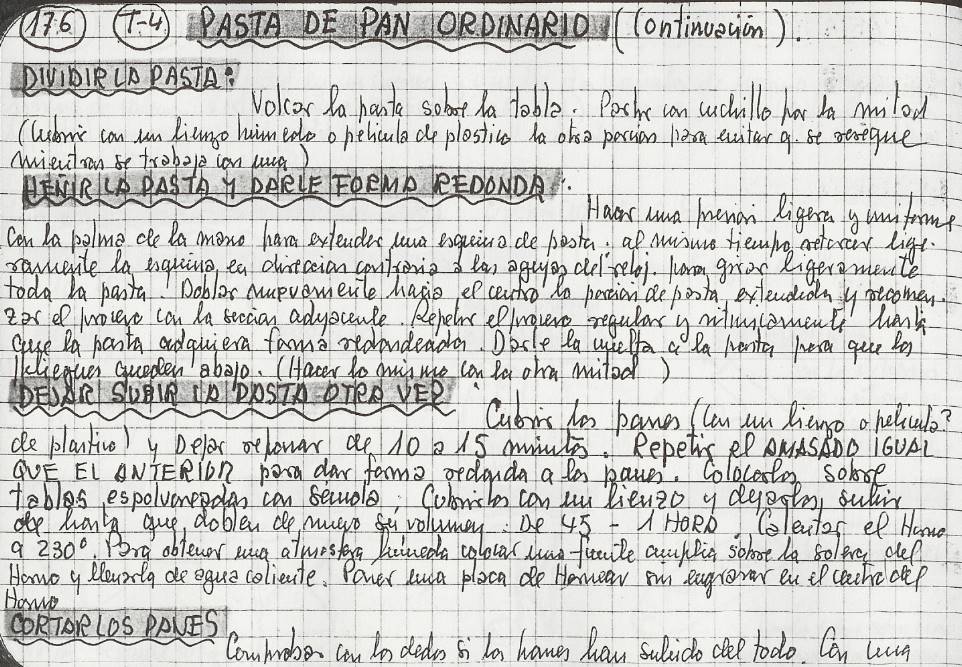 176 T-4 PASTA DE PAN ORDINARIO (Continuación).
DIVIDIR LA PASTA:
Volcar la pasta sobre la tabla. Partir con cuchillo por la mitad
(Cubrir con un lienzo húmedo o película de plastico la otra porcion para evitar q. se reseque
mientras se trabaja con una)
HEÑIR LA PASTA Y DARLE FORMA REDONDA:
Hacer una presion ligera y uniforme
con la palma de la mano para extender una esquina de pasta. al mismo tiempo, retorcer lige-
ramente la esquina, en direccion contraria a las agujas del reloj. para girar ligeramente
toda la pasta. Doblar nuevamente hacia el centro la porcion de pasta, extendida y recomen-
zar el proceso con la seccion adyacente. Repetir el proceso regular y ritmicamente hasta
que la pasta adquiera forma redondeada. Darle la vuelta a la pasta para que los
pliegues queden abajo. (Hacer lo mismo con la otra mitad)
DEJAR SUBIR LA PASTA OTRA VEZ
Cubrir los panes (Con un lienzo o pelicula?
de plastico) y Dejar reposar de 10 a 15 minutos. Repetir el AMASADO IGUAL
QUE EL ANTERIOR para dar forma redonda a los panes. Colocarlos sobre
tablas espolvoreadas con Sémola; Cubrirlos con un lienzo y dejarlos, subir
de hasta que, doblen de nuevo su volumen. De 45 - 1 HORA. Calentar el Horno
a 230º. Para obtener una atmosfera humeda colocar una fuente amplia sobre la solera del
Horno y llenarla de agua caliente. Poner una placa de Hornear sin engrasar en el centro del
Horno
CORTAR LOS PANES
Comprobar con los dedos si los panes han subido del todo. Con una